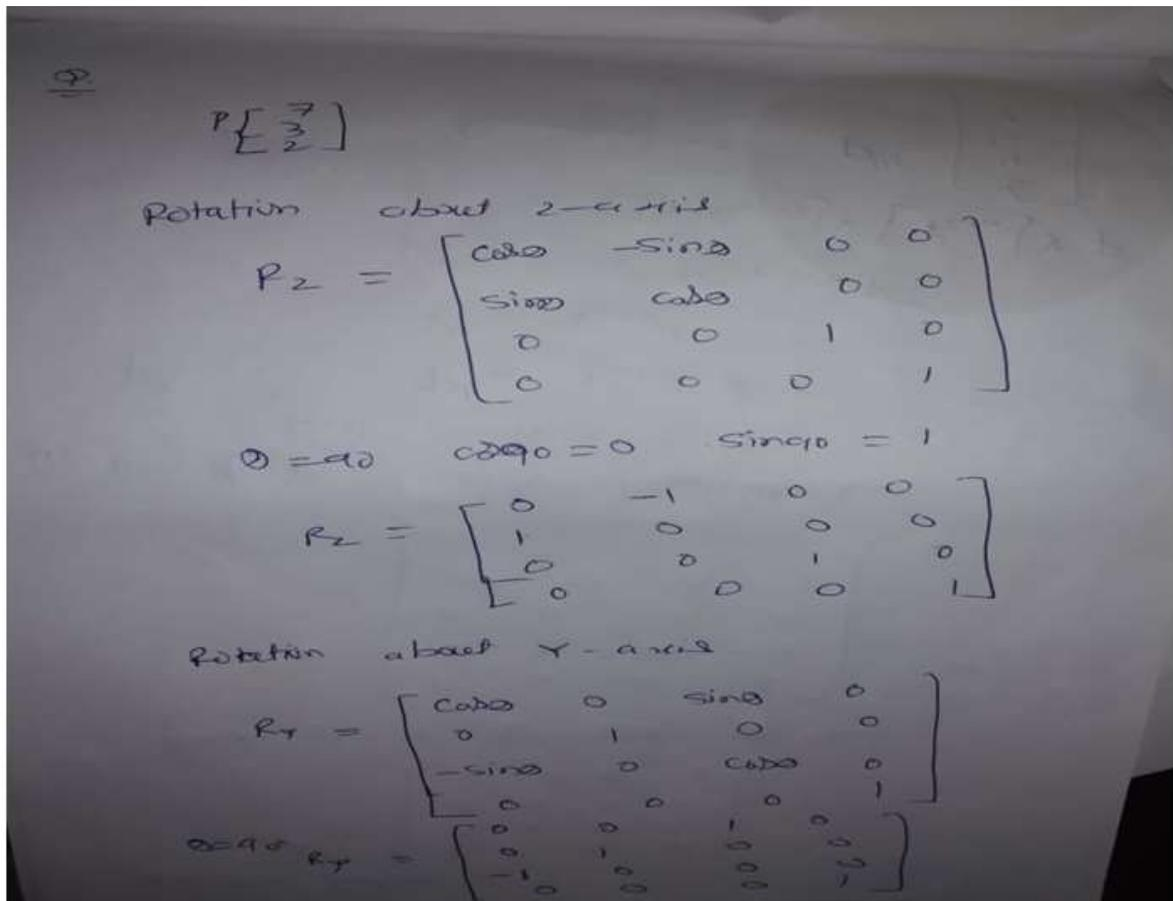 Q.
P [ 7
3
2 ]
Rotation about z-axis
Rz = [ cosθ -sinθ 0 0
sinθ cosθ 0 0
0 0 1 0
0 0 0 1 ]
θ = 90 cos90 = 0 sin90 = 1
Rz = [ 0 -1 0 0
1 0 0 0
0 0 1 0
0 0 0 1 ]
Rotation about Y-axis
RY = [ cosθ 0 sinθ 0
0 1 0 0
-sinθ 0 cosθ 0
0 0 0 1 ]
θ=90 RY = [ 0 0 1 0
0 1 0 0
-1 0 0 0
0 0 0 1 ]